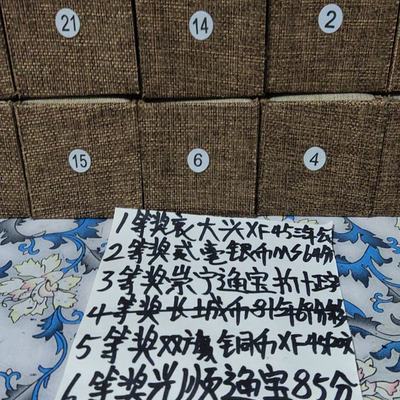 21 14 2
15 6 4
1等奖袁大头XF45三年
2等奖贰毫银币MS64分
3等奖崇宁通宝折十
4等奖长城币81年
5等奖双旗铜币XF45
6等奖光顺通宝85分